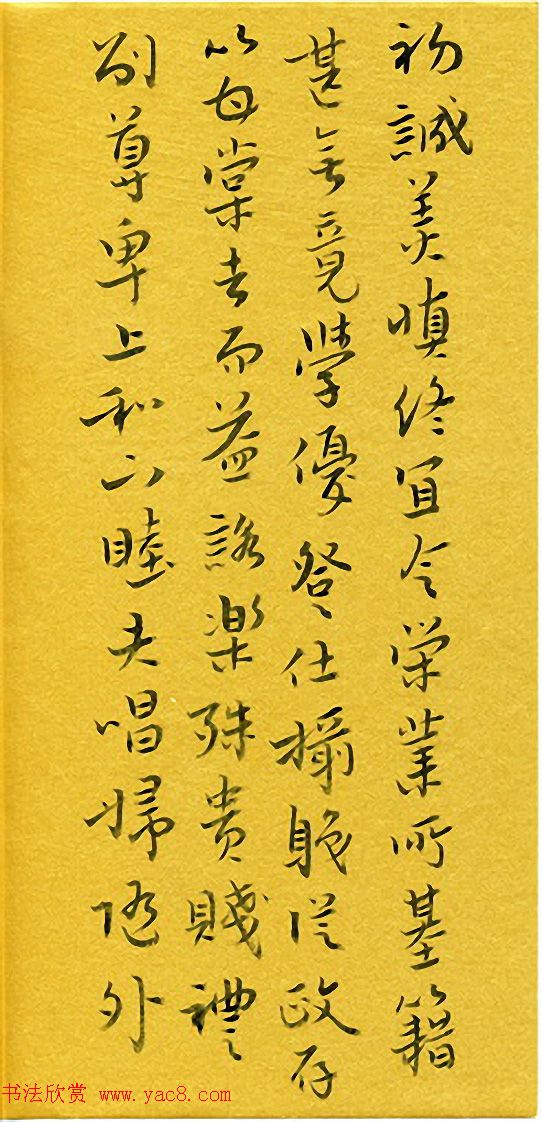 初誠美慎終宜令榮業所基籍
甚無竟學優登仕攝職從政存
以甘棠去而益詠樂殊貴賤禮
別尊卑上和下睦夫唱婦隨外
书法欣赏 www.yac8.com